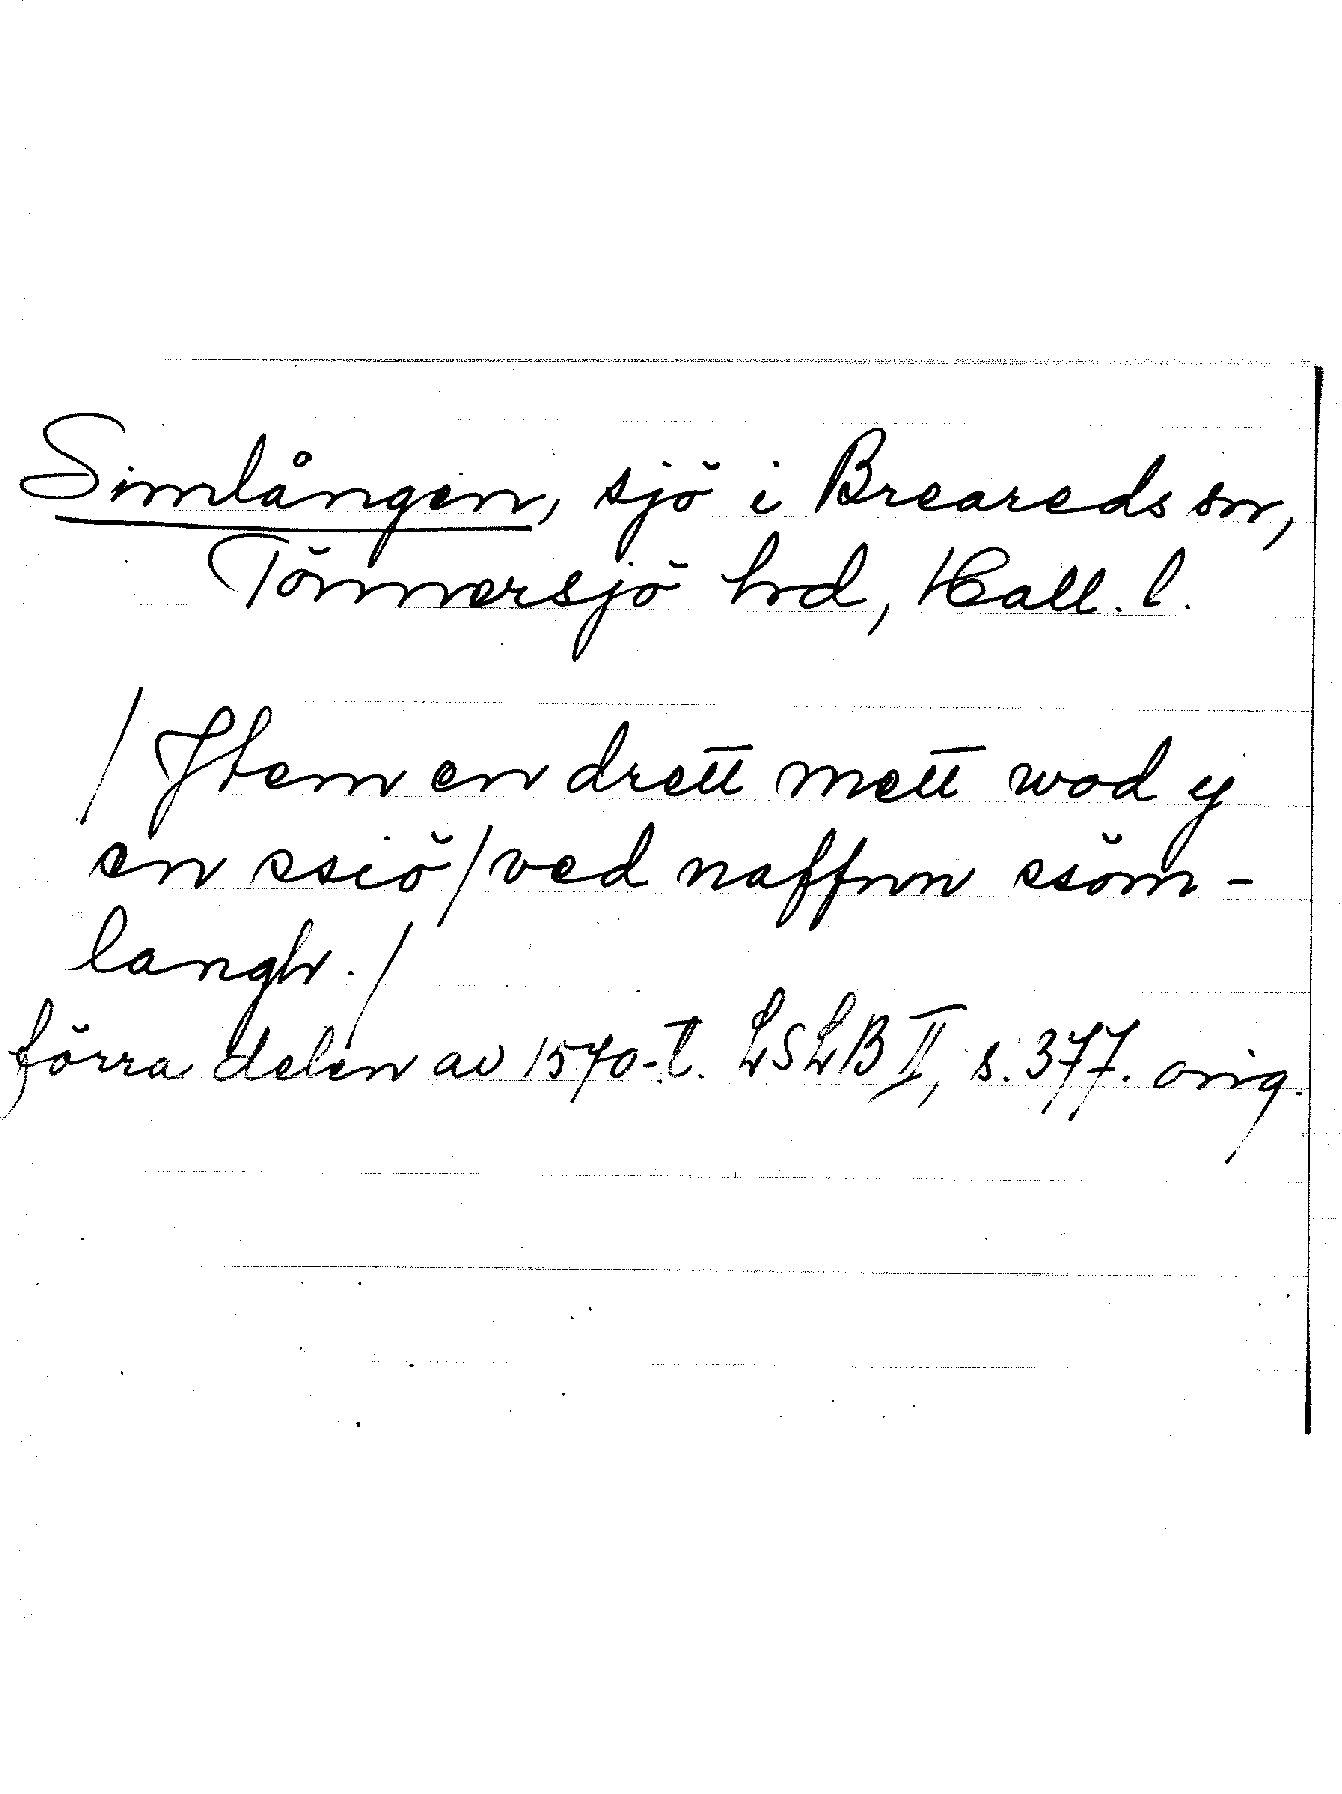 Simlången, sjö i Breareds sn,
Tönnersjö hrd, Hall. l.
/ Jtem en drett mett wod ij
en ssiö / ved naffnn ssöm-
langh. /
förra delen av 1570-t. LSLB II, s. 377. orig.